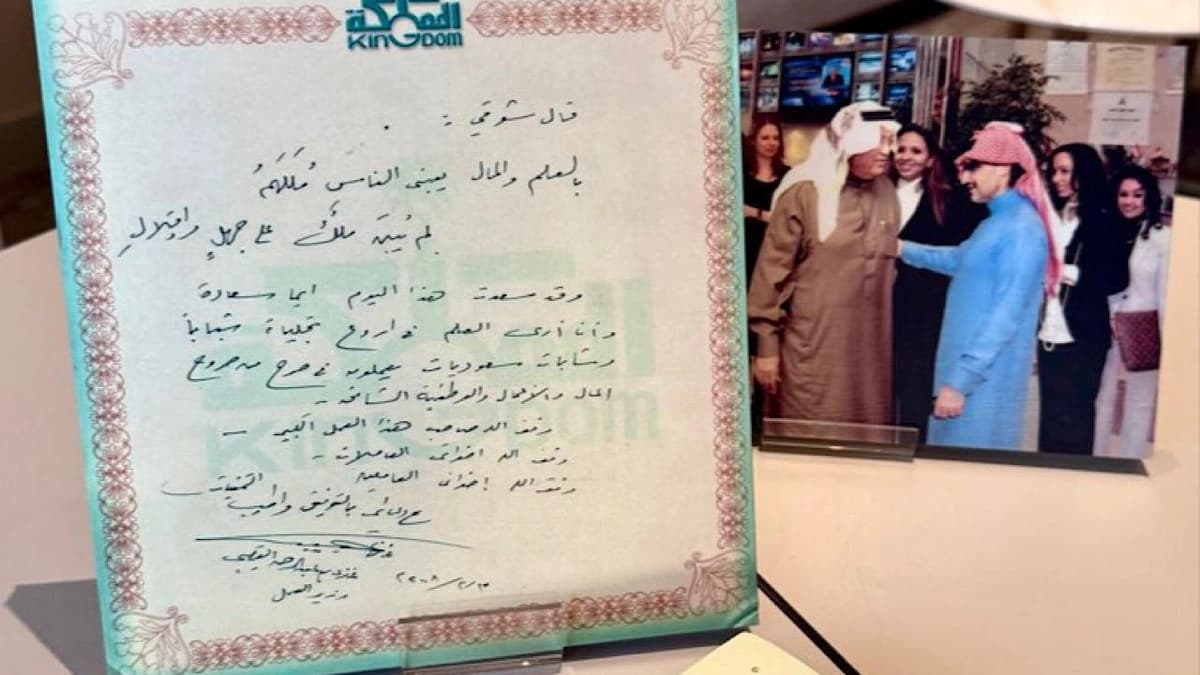 المملكة
KINGDOM
قال شوقي :
بالعلم والمال يبني الناس مُلكَهمُ
لم يُبنَ ملكٌ على جهلٍ وإقلالِ
وقد سعدت هذا اليوم أيما سعادة
وأنا أرى العلم في أروع تجلياته شباباً
وشابات سعوديات يعملون في صرح من صروح
المال والأعمال والوطنية الشامخة -
وفق الله صاحب هذا العمل الكبير -
وفق الله اخواتي العاملات -
وفق الله إخواني العاملين
مع دعائي بالتوفيق وأطيب التمنيات
غازي عبدالرحمن القصيبي
وزير العمل
KINGDOM